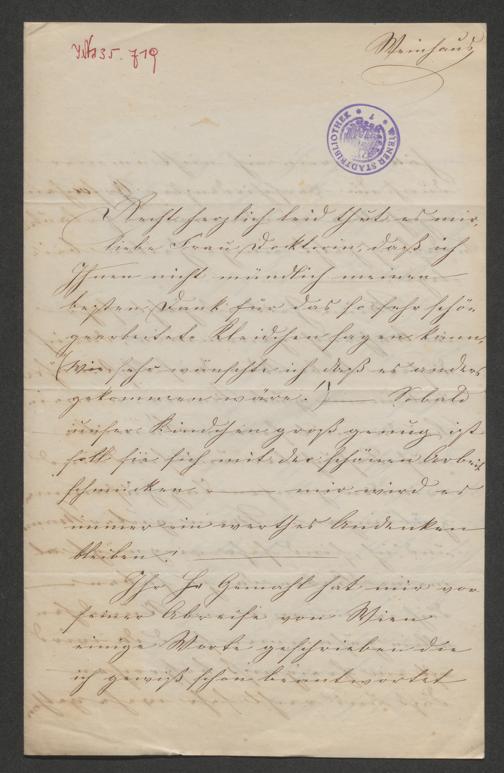 I.N. 35.719
Weinhaus
WIENER STADTBIBLIOTHEK
Recht herzlich leid thut es mir,
liebe Frau Doktorin, daß ich
Ihnen nicht mündlich meinen
besten Dank für das so sehr schön
gearbeitete Kleidchen sagen kann.
(Wie sehr wünschte ich daß es anders
gekommen wäre!) — Sobald
unser Kindchen groß genug ist
soll sie sich mit der schönen Arbeit
schmücken. — mir wird es
immer ein werthes Andenken
bleiben! —
Ihr Hr Gemahl hat mir vor
seiner Abreise von Wien
einige Worte geschrieben die
ich gewiß schon beantwortet